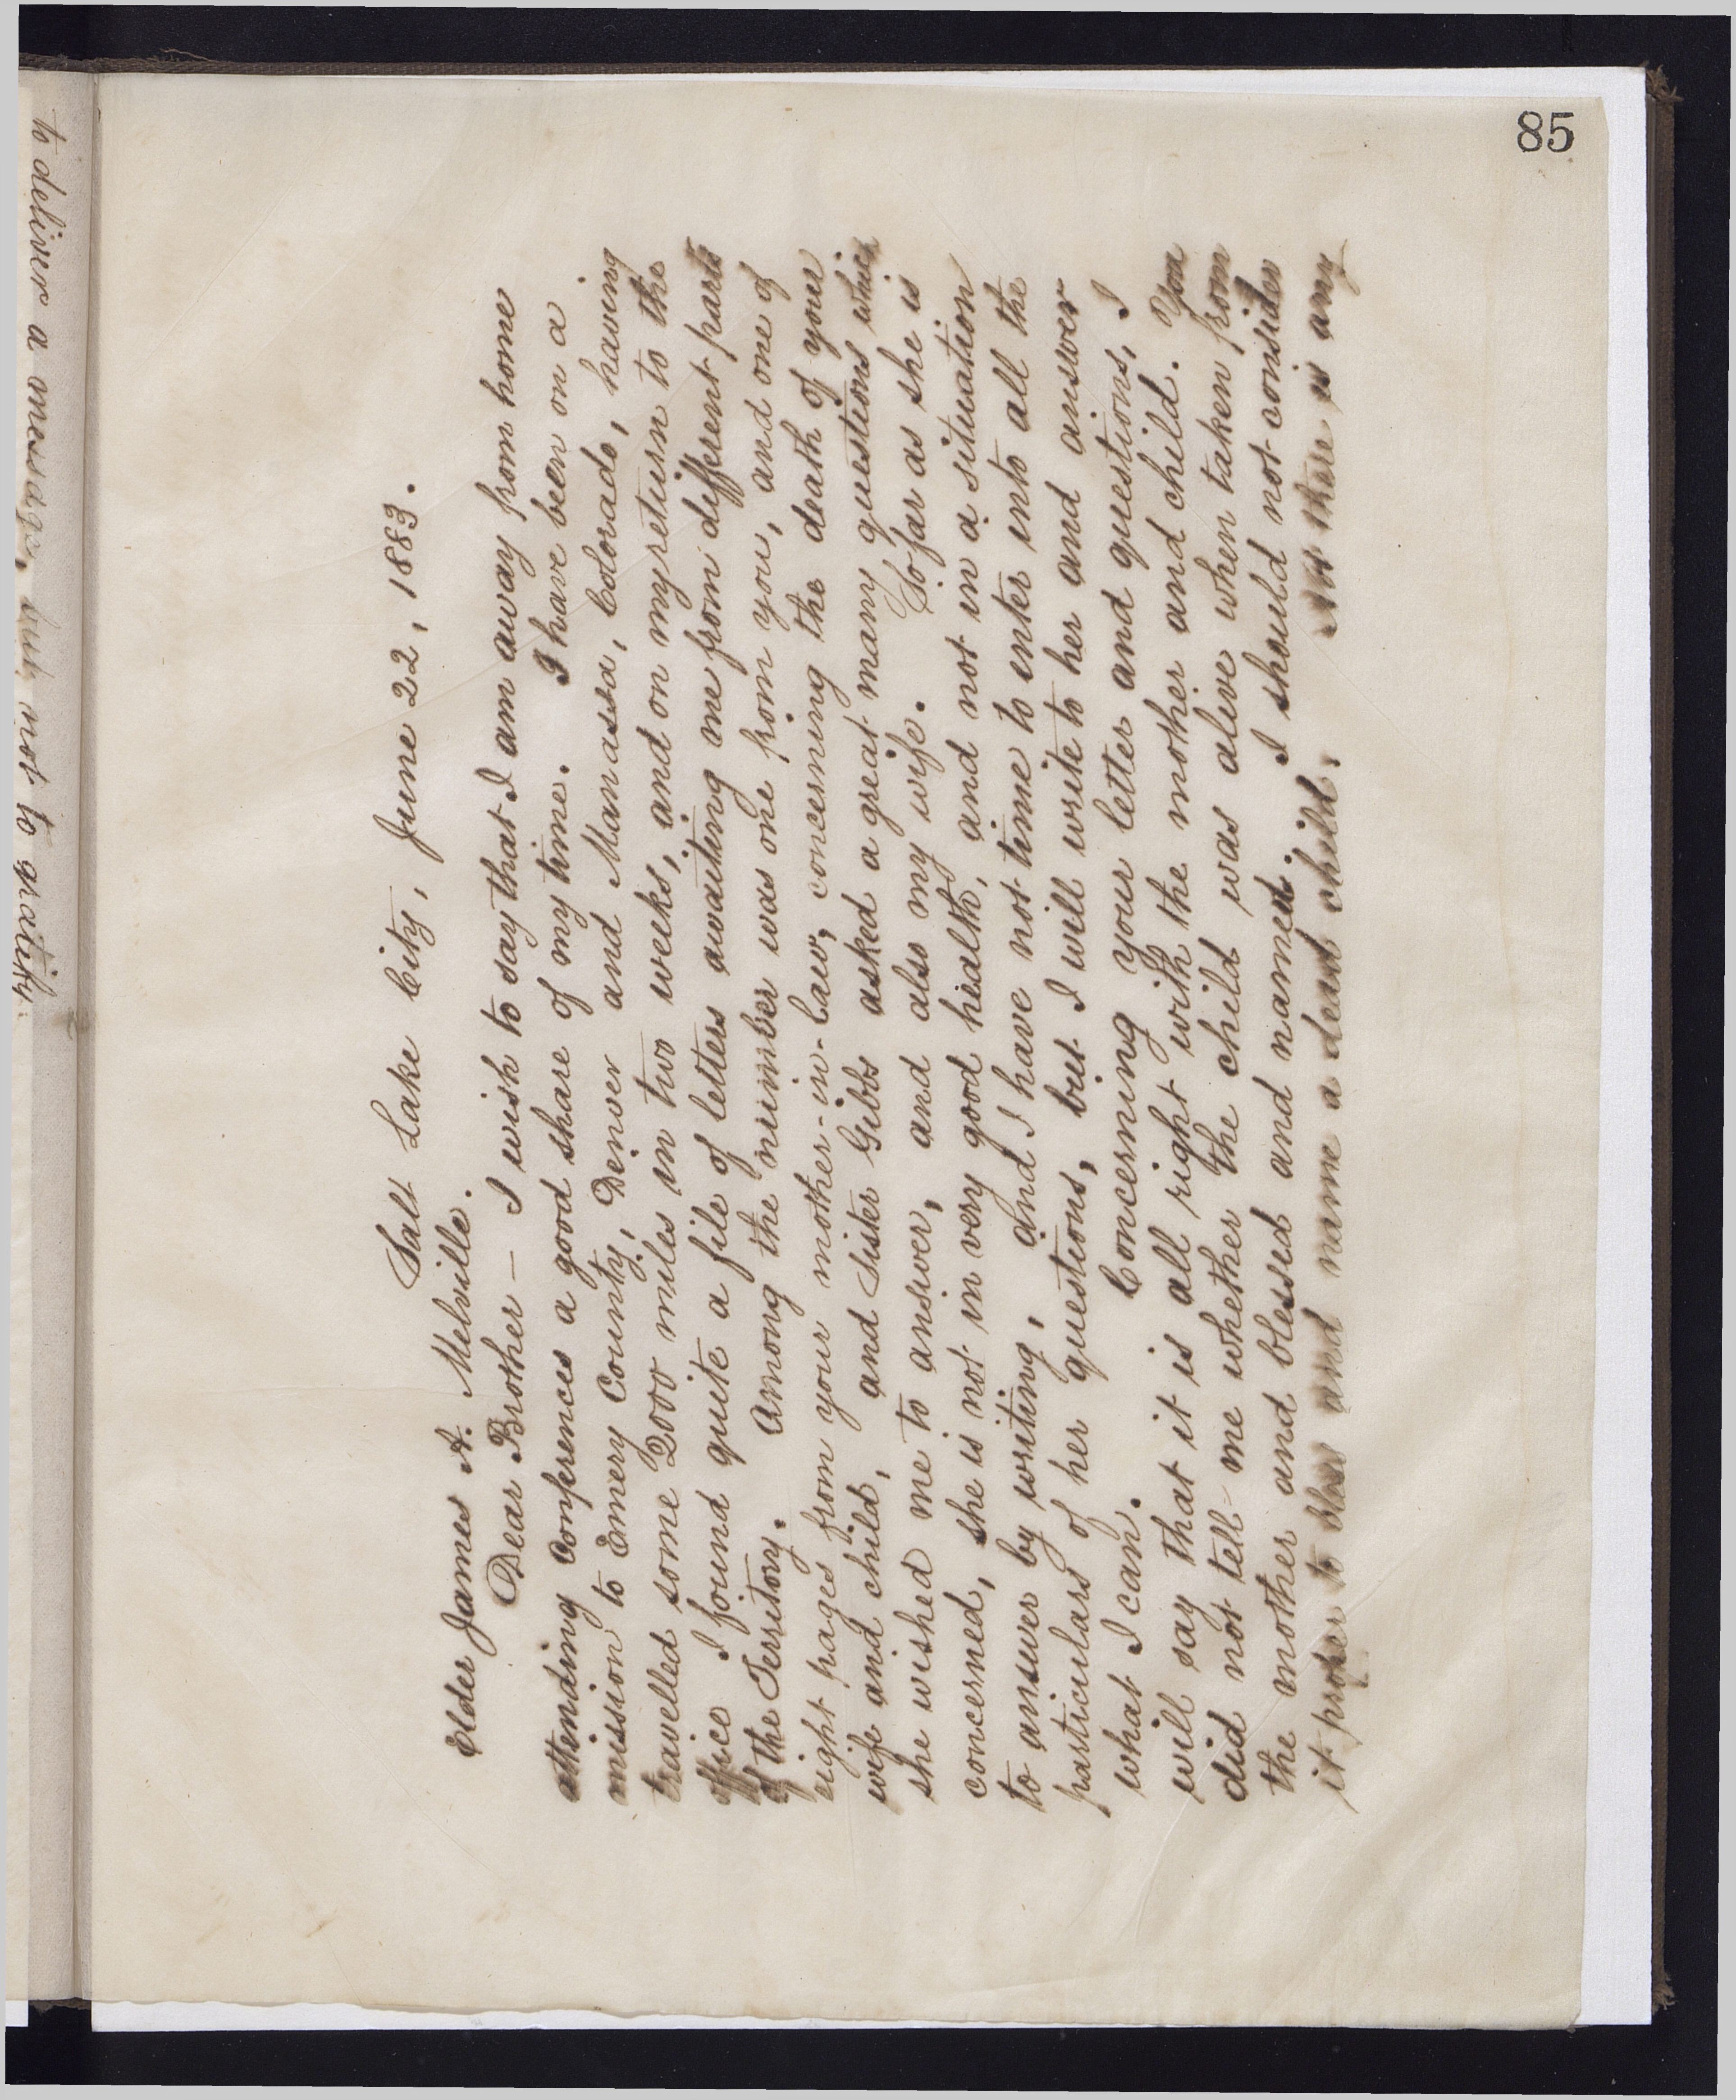 85
Salt Lake City, June 22, 1883.
Elder James A. Melville.
Dear Brother — I wish to say that I am away from home
attending Conferences a good share of my time. I have been on a
mission to Emery County, Denver and Manassa, Colorado, having
travelled some 2000 miles in two weeks, and on my return to the
office I found quite a file of letters awaiting me from different parts
of the Territory. Among the number was one from you, and one of
eight pages from your mother-in-law, concerning the death of your
wife and child, and Sister Gibbs asked a great many questions which
she wished me to answer, and also my wife. So far as she is
concerned, she is not in very good health, and not in a situation
to answer by writing, and I have not time to enter into all the
particulars of her questions, but I will write to her and answer
what I can. Concerning your letter and questions, I
will say that it is all right with the mother and child. You
did not tell me whether the child was alive when taken from
the mother and blessed and named. I should not consider
it proper to bless and name a dead child. But there is any
to deliver a message, but not to gratify